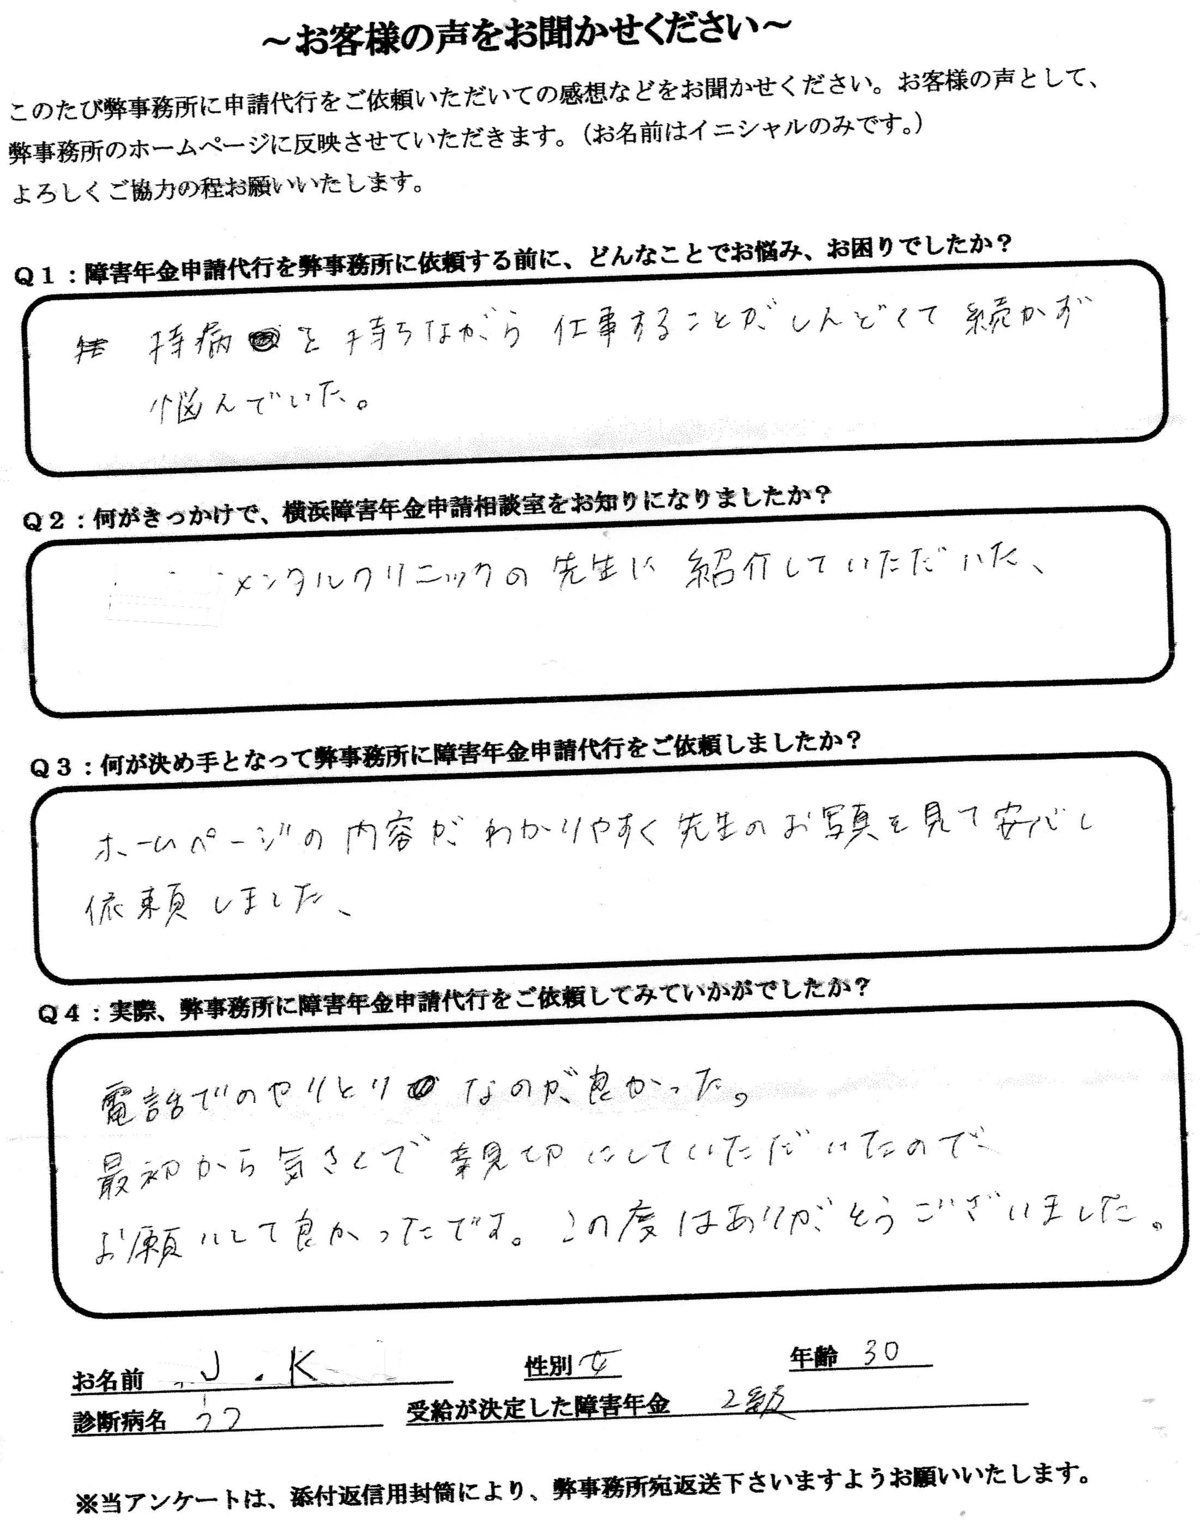 ～お客様の声をお聞かせください～
このたび弊事務所に申請代行をご依頼いただいての感想などをお聞かせください。お客様の声として、
弊事務所のホームページに反映させていただきます。（お名前はイニシャルのみです。）
よろしくご協力の程お願いいたします。
Ｑ１：障害年金申請代行を弊事務所に依頼する前に、どんなことでお悩み、お困りでしたか？
持病を持ちながら仕事することがしんどくて続かず
悩んでいた。
Ｑ２：何がきっかけで、横浜障害年金申請相談室をお知りになりましたか？
メンタルクリニックの先生に紹介していただいた、
Ｑ３：何が決め手となって弊事務所に障害年金申請代行をご依頼しましたか？
ホームページの内容がわかりやすく先生のお写真を見て安心し
依頼しました、
Ｑ４：実際、弊事務所に障害年金申請代行をご依頼してみていかがでしたか？
電話でのやりとりなのが良かった。
最初から気さくで親切にしていただいたので、
お願いして良かったです。この度はありがとうございました。
お名前 J.K 性別 女 年齢 30
診断病名 うつ 受給が決定した障害年金 2級
※当アンケートは、添付返信用封筒により、弊事務所宛返送下さいますようお願いいたします。